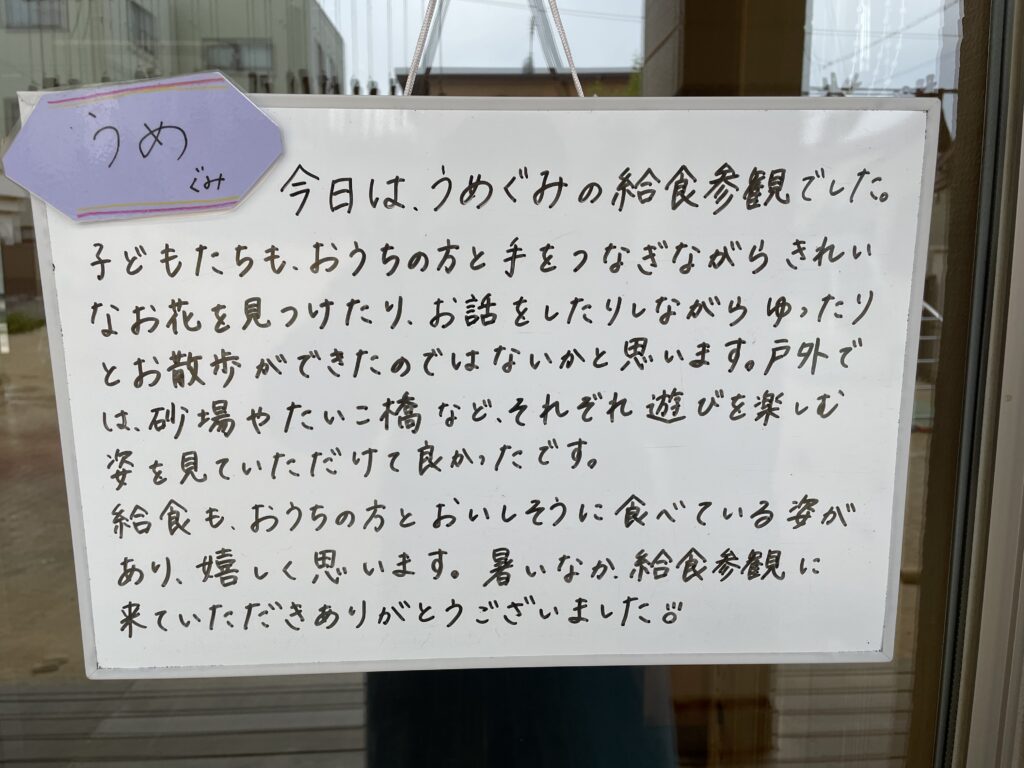 うめ
ぐみ
今日は、うめぐみの給食参観でした。
子どもたちも、おうちの方と手をつなぎながらきれい
なお花を見つけたり、お話をしたりしながらゆったり
とお散歩ができたのではないかと思います。戸外で
は、砂場やたいこ橋など、それぞれ遊びを楽しむ
姿を見ていただけて良かったです。
給食も、おうちの方とおいしそうに食べている姿が
あり、嬉しく思います。暑いなか、給食参観に
来ていただきありがとうございました